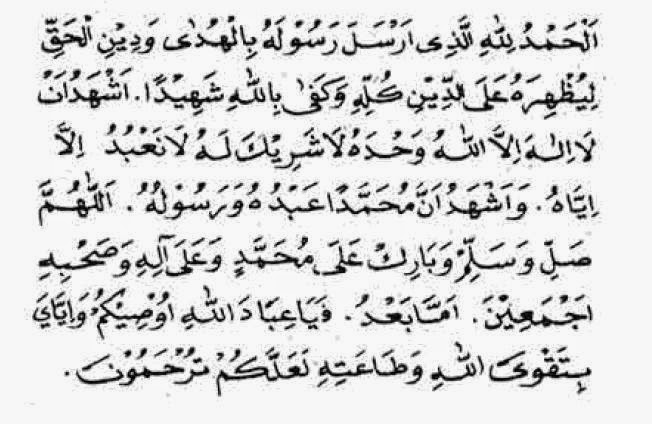 اَلْحَمْدُ لِلّٰهِ الَّذِى اَرْسَلَ رَسُوْلَهُ بِالْهُدٰى وَدِيْنِ الْحَقِّ
لِيُظْهِرَهُ عَلَى الدِّيْنِ كُلِّهِ وَكَفٰى بِاللّٰهِ شَهِيْدًا. اَشْهَدُ اَنْ
لَا اِلٰهَ اِلَّا اللّٰهُ وَحْدَهُ لَا شَرِيْكَ لَهُ لَا نَعْبُدُ اِلَّا
اِيَّاهُ. وَاَشْهَدُ اَنَّ مُحَمَّدًا عَبْدُهُ وَرَسُوْلُهُ. اَللّٰهُمَّ
صَلِّ وَسَلِّمْ وَبَارِكْ عَلَى مُحَمَّدٍ وَعَلَى آلِهِ وَصَحْبِهِ
اَجْمَعِيْنَ. اَمَّا بَعْدُ. فَيَا عِبَادَ اللّٰهِ اُوْصِيْكُمْ وَاِيَّايَ
بِتَقْوَى اللّٰهِ وَطَاعَتِهِ لَعَلَّكُمْ تُرْحَمُوْنَ.